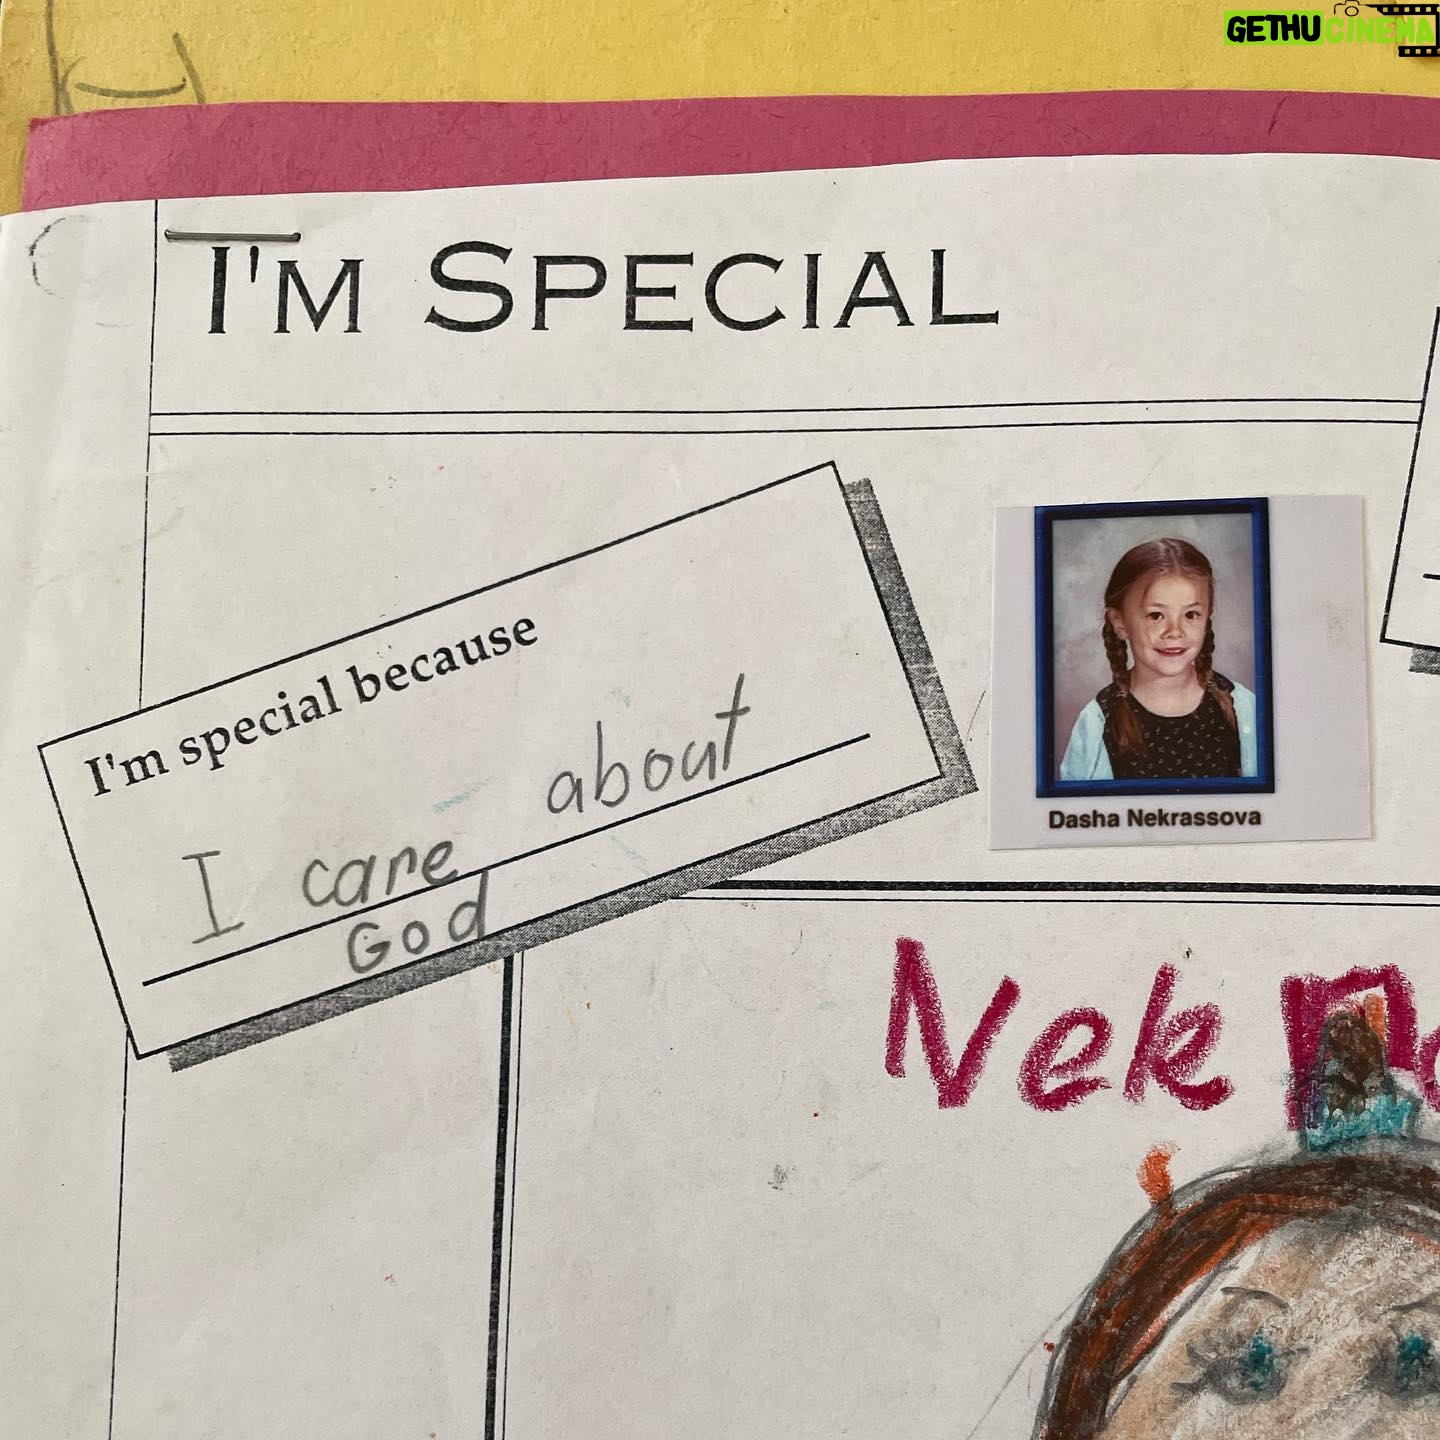 GETHUCINEMA
I'M SPECIAL
I'm special because
I care about
God
Dasha Nekrassova
Nek